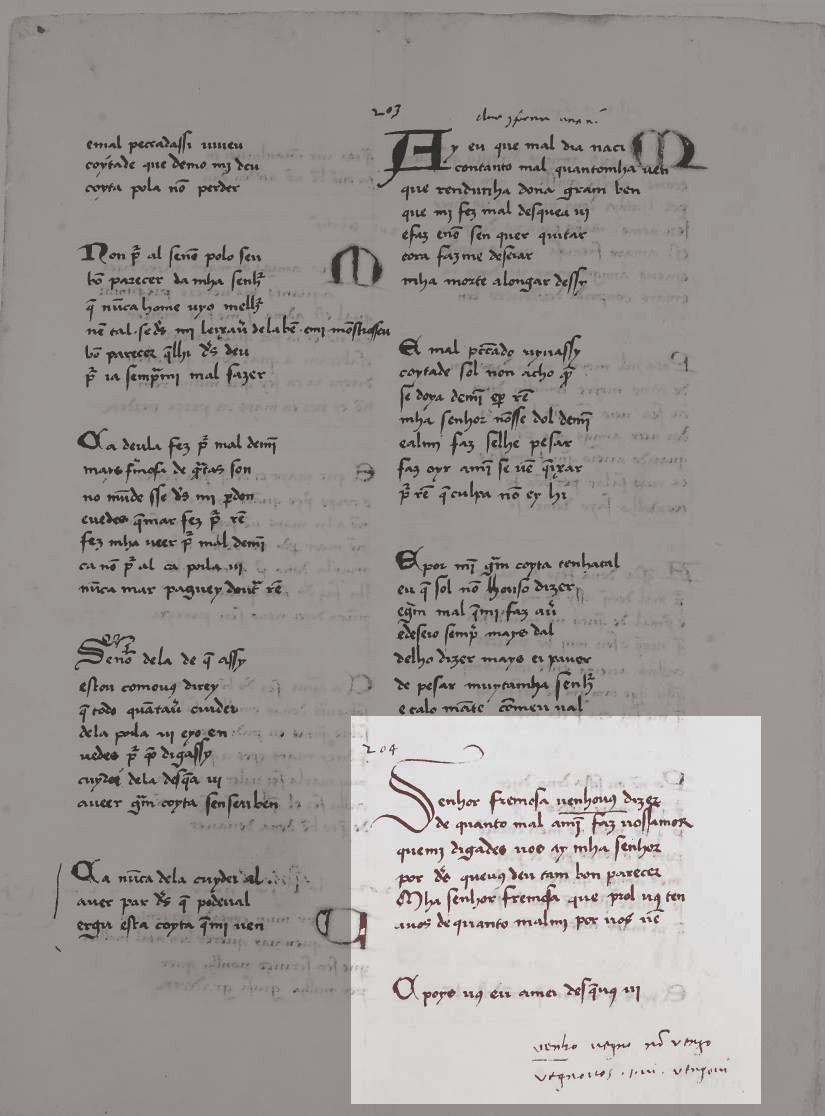 emal peccadassi uiueu
coytade que demo mi deu
coyta pola nō perder
Non pͬ al senō polo seu
bō parecer da mha senhͬ
q̄ nūca home uyo mellͬ
nē tal. se d̄s mi leixau̓ dela bē. emi mostrosseu
bō parecer q̄lhi d̄s deu
pͬ ia semp̄mi mal fazer
Ca deula fez pͬ mal demī
mays f̓mosa de q̄tas son
no mūdo sse d̄s mi ꝑdon
euedes q̄mar fez pͬ rē
fez mha ueer pͬ mal demī
ca nō pͬ al ca poila ui
nūca mar paguey doutͬ rē
Senōͬ dela de q̄ assy
estou comouꝯ direy
q̄ todo quātau̓ cuidei
dela poila ui eyo en
uedes pͬ q̄o digassy
cuydei dela desq̄a ui
aueer gͬm coyta sen seu ben
Ca nūca dela cuydei al
auer par d̄s q̄ poderal
ergu esta coyta q̄mi uen
203
Ay eu que mal dia naci
contanto mal quantomha uen
que rendunha dona gram ben
que mi fez mal desquea ui
efaz enō sen quer quitar
eora fazme deseiar
mha morte alongar dessy
E mal pccādo uyuassy
coytade sol non acho q̄
se doya demī eꝑ rē
mha senhor nōsse dol demī
ealmi faz selhe pesar
faz oyr amī se uē q̄ixar
pͬ rē q̄ culpa nō ey hi
E por mī gͬm coyta tenhatal
eu q̄ sol nō houso dizer
egͬm mal q̄mi faz au̓
edeseio semp̄ mays dal
delho dizer mays ei pauor
de pesar muytamha senhͬ
e calo māte comeu ual
204
Senhor fremosa uenhouꝯ dizer
de quanto mal amī faz uossamor
quemi digades uos ay mha senhor
por d̄s queuꝯ deu tam bon parecer
Mha senhor fremosa que prol uꝯ ten
auos de quanto malmi por uos uē
Ca poys uꝯ eu amei desq̄uꝯ ui
venho